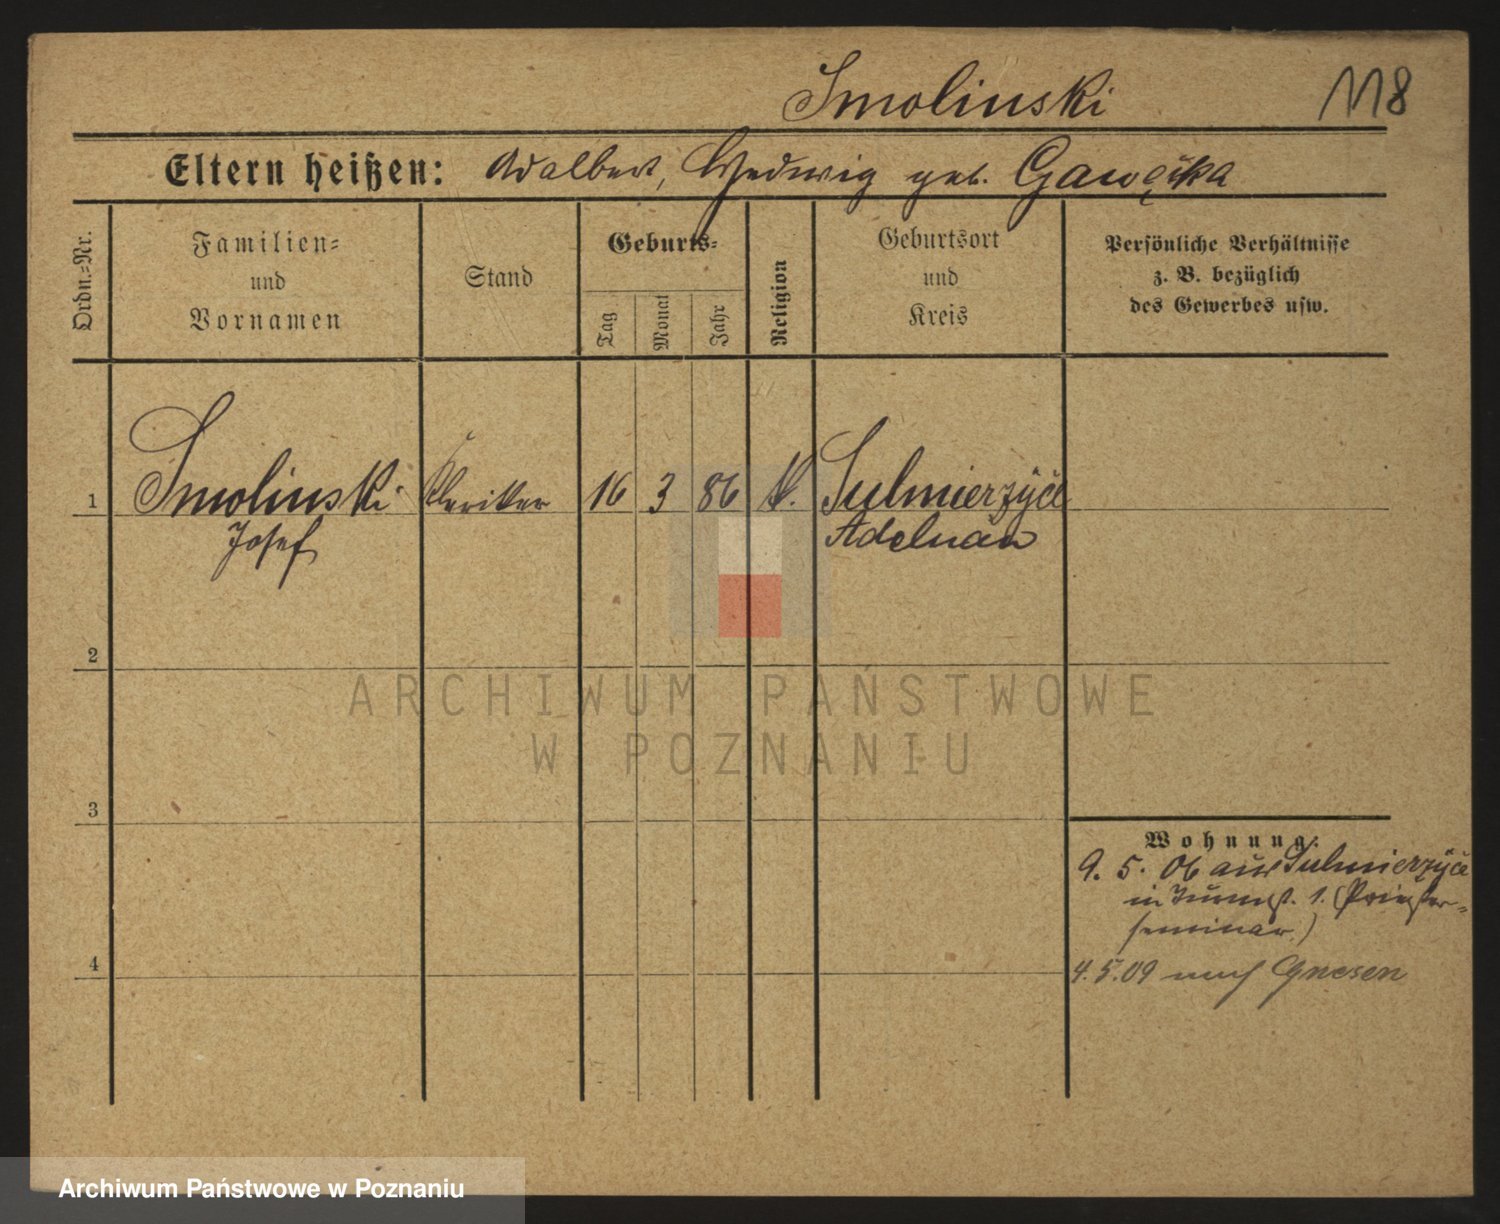 Smolinski
118
Eltern heißen: Adalbert, Hedwig geb. Gawęcka
Ordn.=Nr.
Familien=
und
Vornamen
Stand
Geburts=
Tag
Monat
Jahr
Religion
Geburtsort
und
Kreis
Persönliche Verhältnisse
z. B. bezüglich
des Gewerbes usw.
1 Smolinski Kleriker 16 3 86 k. Sulmierzyce
Josef Adelnau
2
3
4
Wohnung:
9. 5. 06 aus Sulmierzyce
in Turmst. 1. (Priester=
seminar.)
4.5.09 nach Gnesen
ARCHIWUM PAŃSTWOWE
W POZNANIU
Archiwum Państwowe w Poznaniu